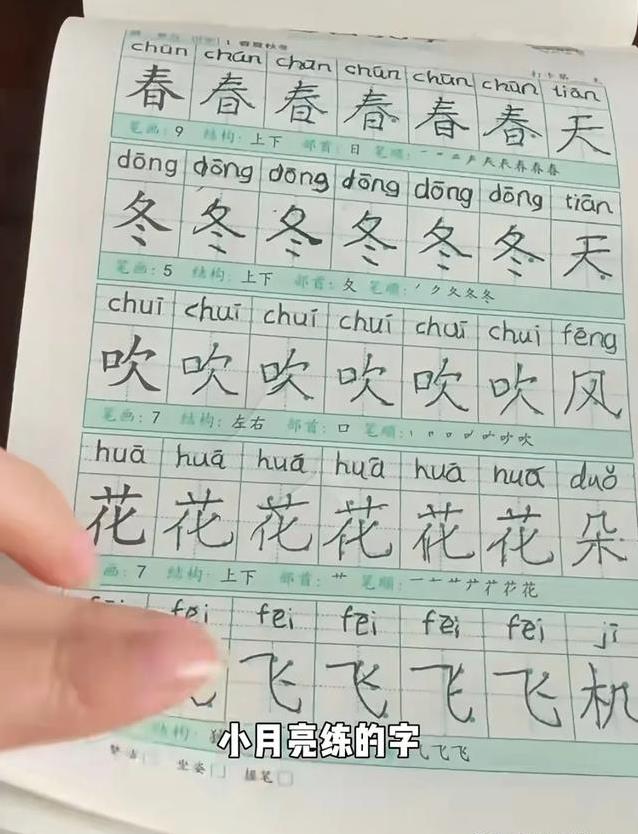 1 春夏秋冬
chūn chūn chūn chūn chūn chūn tiān
春 春 春 春 春 春 天
笔画: 9 结构: 上下 部首: 日 笔顺:
dōng dōng dōng dōng dōng dōng tiān
冬 冬 冬 冬 冬 冬 天
笔画: 5 结构: 上下 部首: 夂 笔顺: 丿 ク 夂 冬 冬
chuī chuī chuī chuī chuī chuī fēng
吹 吹 吹 吹 吹 吹 风
笔画: 7 结构: 左右 部首: 口 笔顺:
huā huā huā huā huā huā duǒ
花 花 花 花 花 花 朵
画: 7 结构: 上下 部首: 艹 笔顺:
fēi fēi fēi fēi fēi jī
飞 飞 飞 飞 机
结构: 独
小月亮练的字
飞 飞
坐姿 握笔